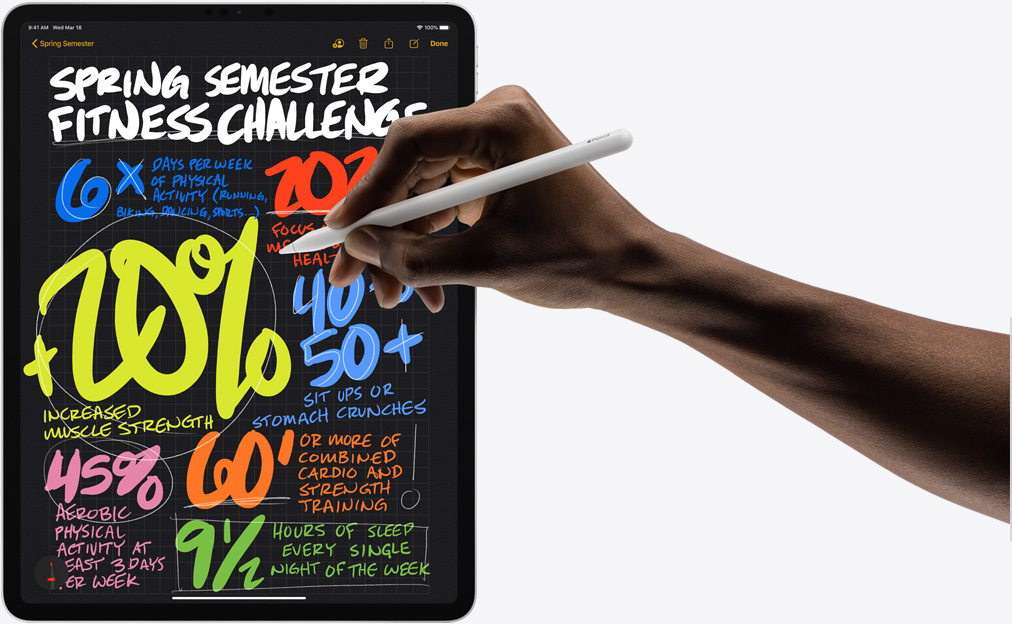 9:41 AM Wed Mar 18
100%
Spring Semester
Done
SPRING SEMESTER
FITNESS CHALLENGE
6X DAYS PER WEEK
OF PHYSICAL
ACTIVITY (RUNNING,
BIKING, DANCING, SPORTS...)
202
FOCUS
HEAL
+20%
INCREASED
MUSCLE STRENGTH
40-
50+
SIT UPS OR
STOMACH CRUNCHES
45%
AEROBIC
PHYSICAL
ACTIVITY AT
EAST 3 DAYS
ER WEEK
60'
OR MORE OF
COMBINED
CARDIO AND
STRENGTH
TRAINING
9 1/2
HOURS OF SLEEP
EVERY SINGLE
NIGHT OF THE WEEK